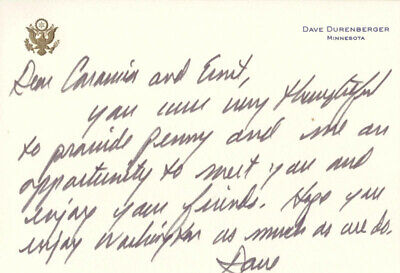 DAVE DURENBERGER
MINNESOTA
Dear and Ernst,
you were very thoughtful
to provide Penny and me an
opportunity to meet you and
enjoy your friends. Hope you
enjoy Washington as much as we do.
Dave